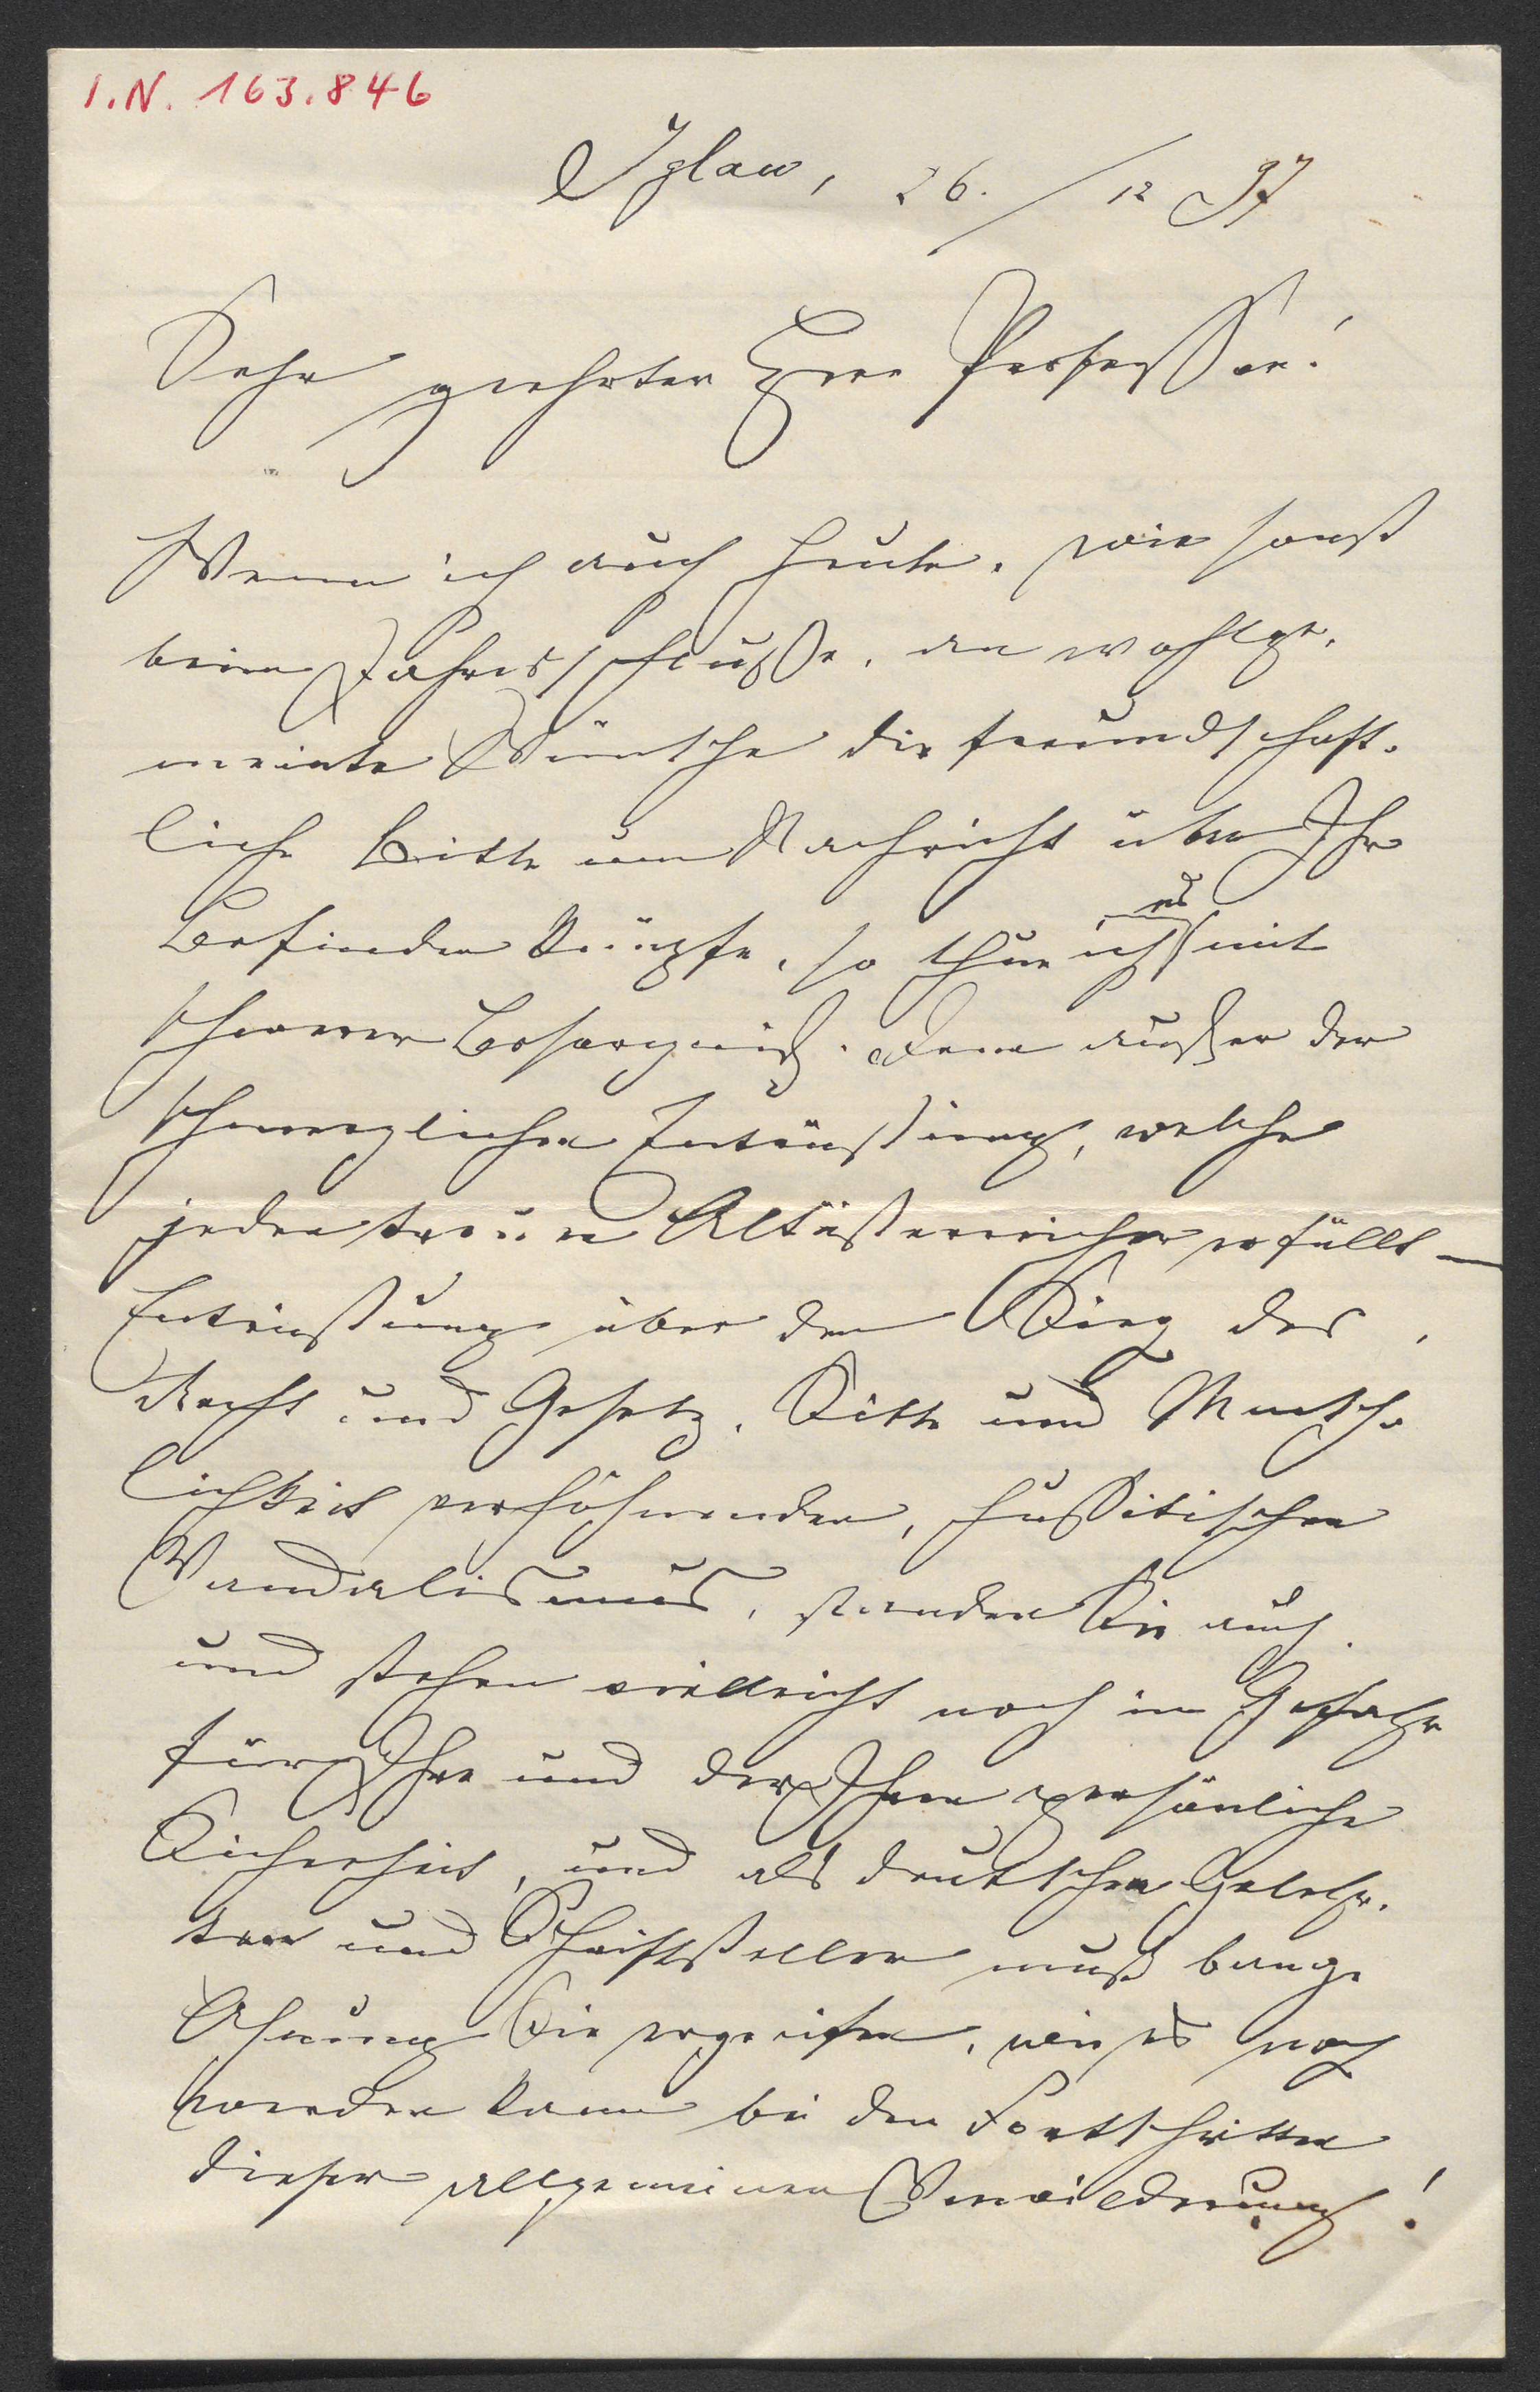 I.N. 163.846
Iglau, 26./12 97
Sehr geehrter Herr Professor!
Wenn ich auch heute, wie sonst
beim Jahresschlusse, an wohlge-
meinte Wünsche die freundschaft-
liche Bitte um Nachricht über Ihr
Befinden knüpfe, so thue ich es mit
schwerer Besorgniß. Denn außer der
schmerzlichen Entrüstung, welche
jeden treuen Altösterreicher erfüllt —
Entrüstung über den Sieg des,
Recht und Gesetz, Sitte und Mensch-
lichkeit verhöhnenden, hussitischen
Vandalismus, standen Sie auch
und stehen vielleicht noch in Gefahr
für Ihre und der Ihren persönliche
Sicherheit, und als deutschen Gelehr-
ten und Schriftsteller muß bange
Ahnung Sie ergreifen, wie es noch
werden kann bei den Fortschritten
dieser allgemeinen Verwilderung!